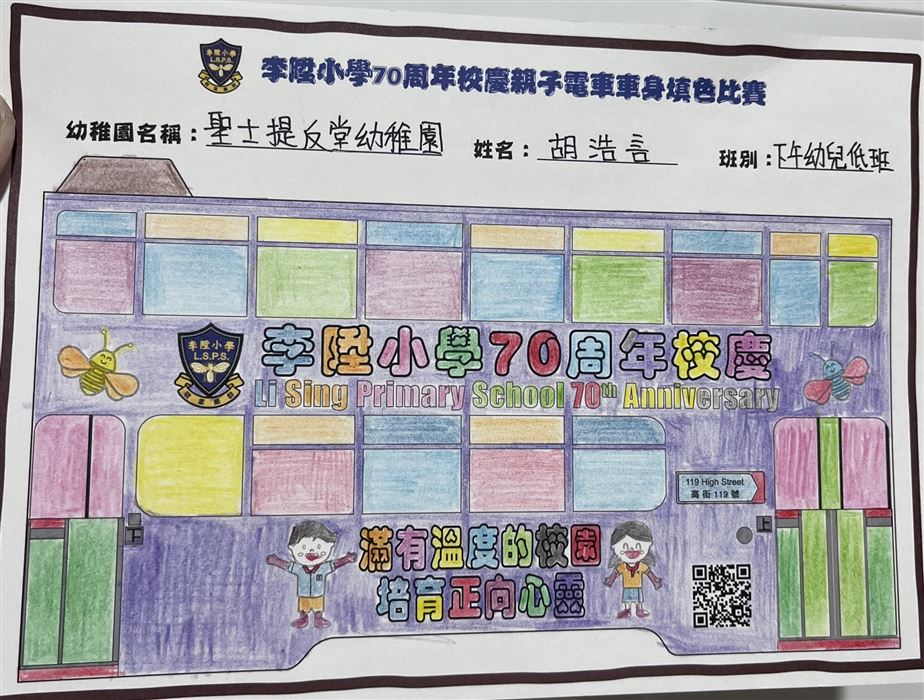 李陞小學
L.S.P.S.
李陞小學70周年校慶親子電車車身填色比賽
幼稚園名稱：聖士提反堂幼稚園 姓名：胡浩言 班別：下午幼兒低班
李陞小學
L.S.P.S.
李陞小學70周年校慶
Li Sing Primary School 70th Anniversary
119 High Street
高街 119 號
下
上
滿有溫度的校園
培育正向心靈